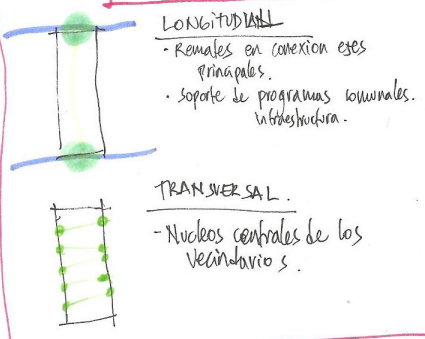 LONGITUDINAL
- Remates en conexion ejes
principales.
- Soporte de programas comunales.
infraestructura.
TRANSVERSAL.
- Nucleos centrales de los
vecindarios.